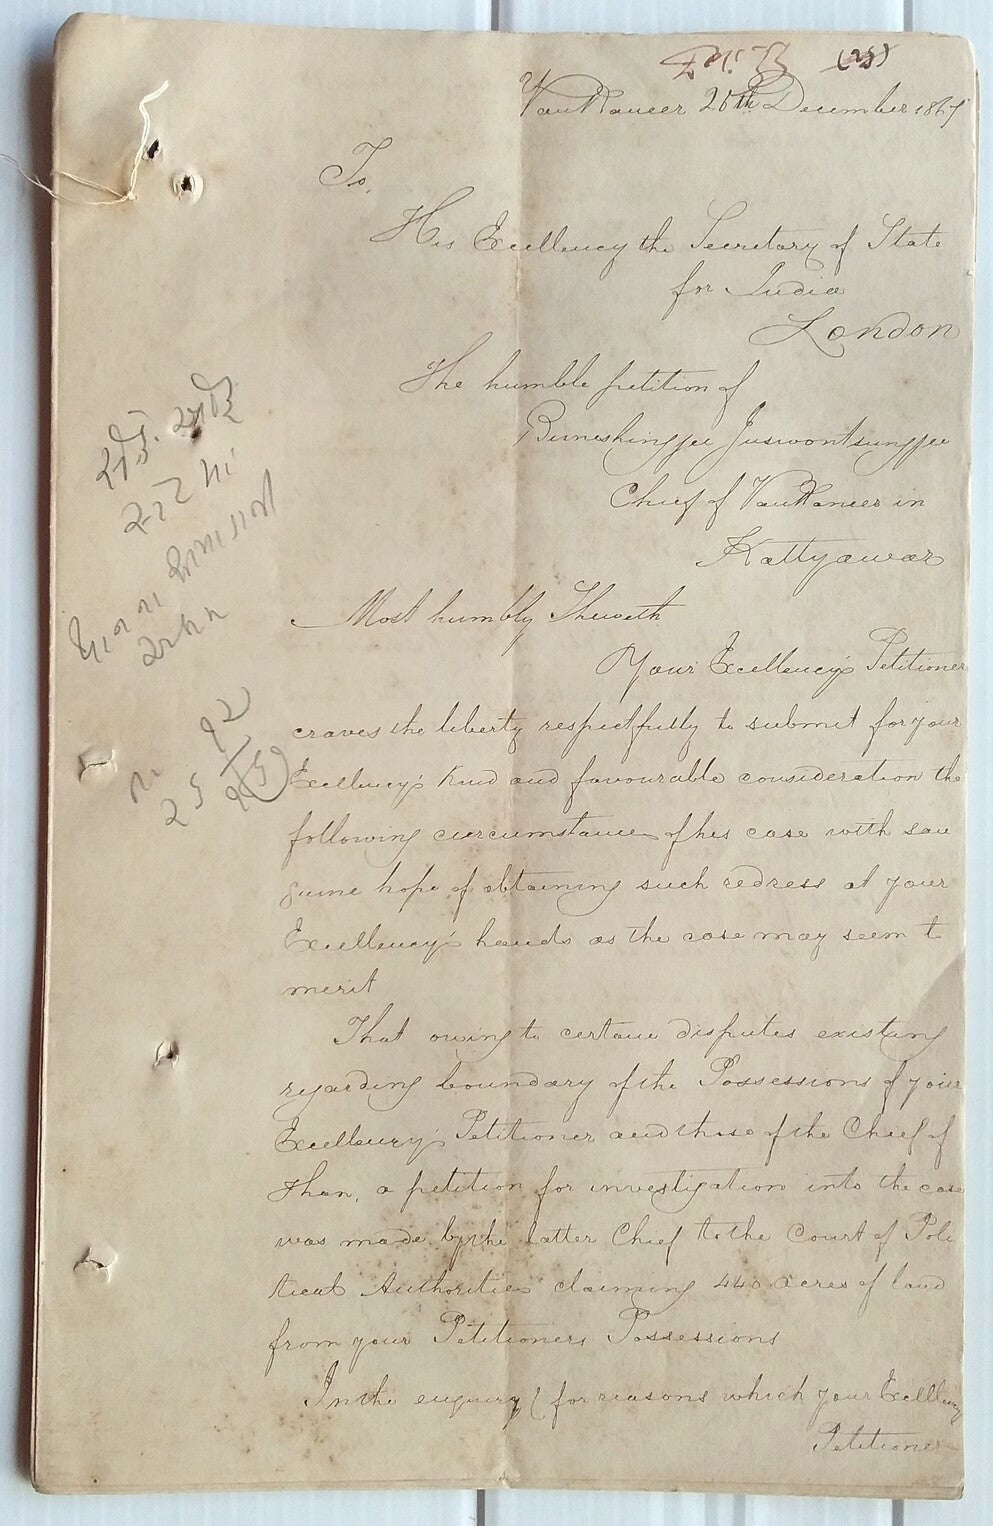 VanKaneer 20th December 1867
To,
His Excellency the Secretary of State
for India
London
The humble petition of
Buneshingjee Juswontsungjee
Chief of VanKaneer in
Kattyawar
Most humbly Sheweth
Your Excellency's Petitioner
craves the liberty respectfully to submit for your
Excellency's Kind and favourable consideration the
following circumstances of his case with san
guine hope of obtaining such redress at your
Excellency's hands as the case may seem to
merit
That owing to certain disputes existing
regarding boundary of the Possessions of your
Excellency's Petitioner and those of the Chief of
Than, a petition for investigation into the case
was made by the latter Chief to the Court of Poli
tical Authorities claiming 440 acres of land
from your Petitioners Possessions
In the enquiry (for reasons which your Excellency
Petitioner